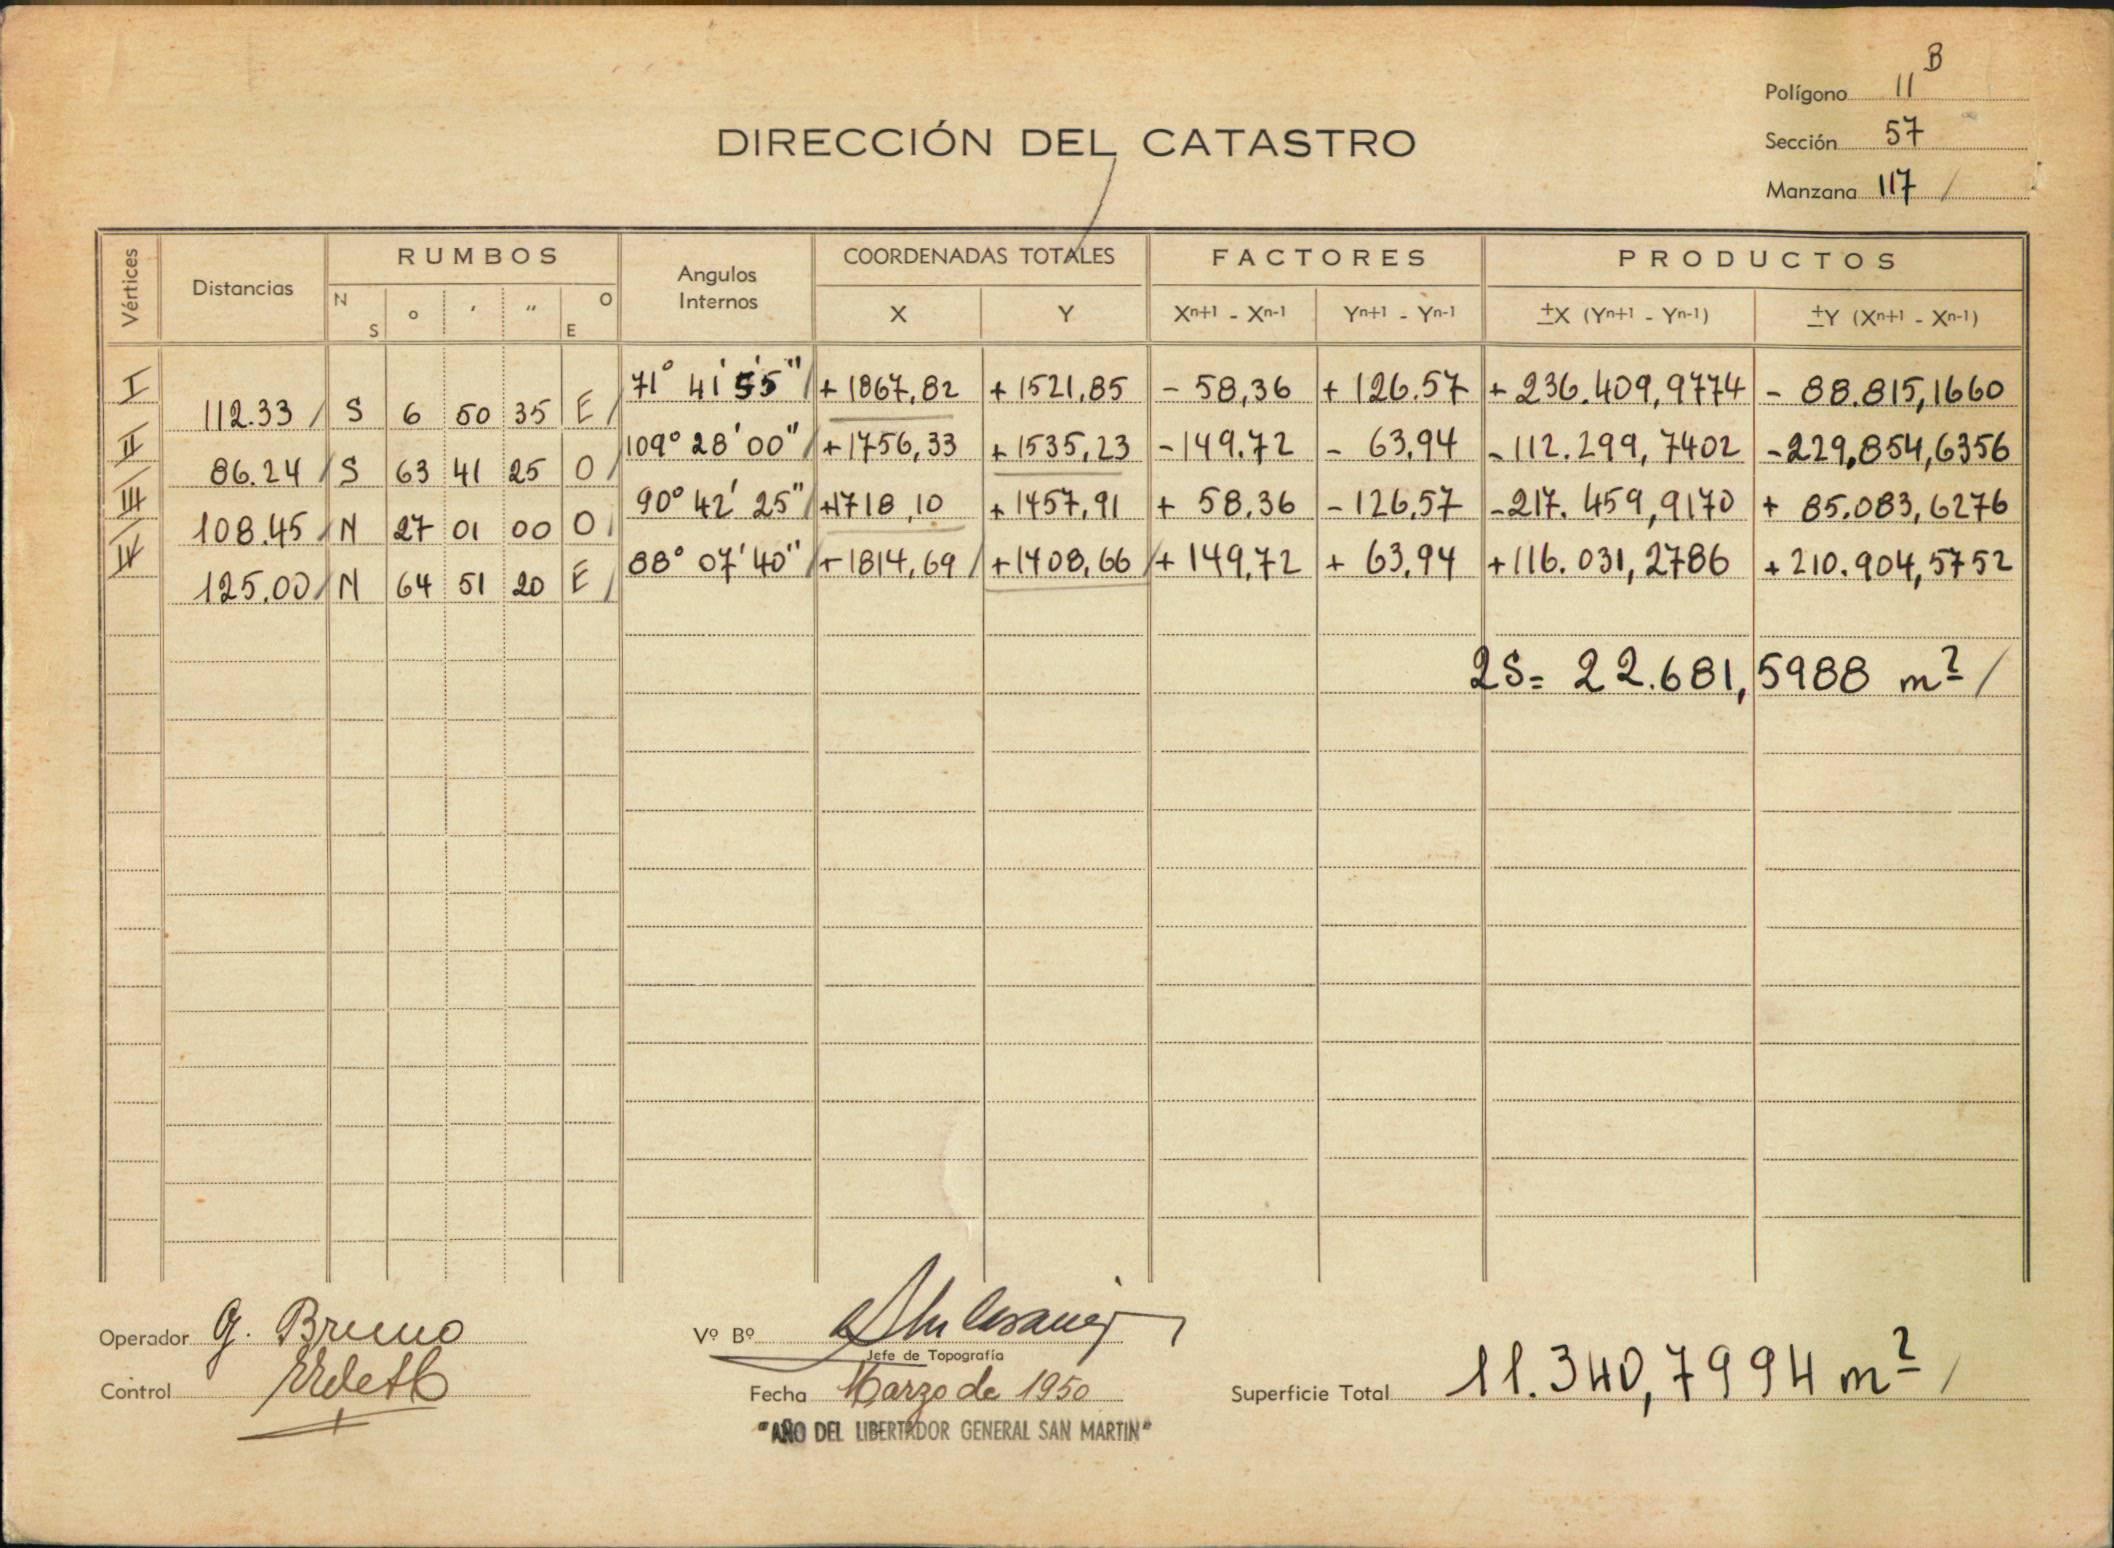 B
Polígono 11
DIRECCIÓN DEL CATASTRO
Sección 57
Manzana 117 /
Vértices Distancias RUMBOS Angulos Internos COORDENADAS TOTALES FACTORES PRODUCTOS
N S ° ′ ″ E O X Y Xn+1 - Xn-1 Yn+1 - Yn-1 ±X (Yn+1 - Yn-1) ±Y (Xn+1 - Xn-1)
I 71° 41' 55" / + 1867,82 + 1521,85 - 58,36 + 126.57 + 236.409,9774 - 88.815,1660
112.33 / S 6 50 35 E /
II 109° 28' 00" / + 1756,33 + 1535,23 - 149.72 - 63,94 - 112.299,7402 - 229.854,6356
86.24 / S 63 41 25 O /
III 90° 42' 25" / + 1718,10 + 1457,91 + 58.36 - 126,57 - 217.459,9170 + 85.083,6276
108.45 / N 27 01 00 O /
IV 88° 07' 40" / + 1814,69 / + 1408,66 / + 149,72 + 63,94 + 116.031,2786 + 210.904,5752
125.00 / N 64 51 20 E /
2S = 22.681,5988 m² /
Operador G. Bruno
Vº Bº
Jefe de Topografía
Control
Fecha Marzo de 1950
Superficie Total 11.340,7994 m² /
"AÑO DEL LIBERTADOR GENERAL SAN MARTIN"